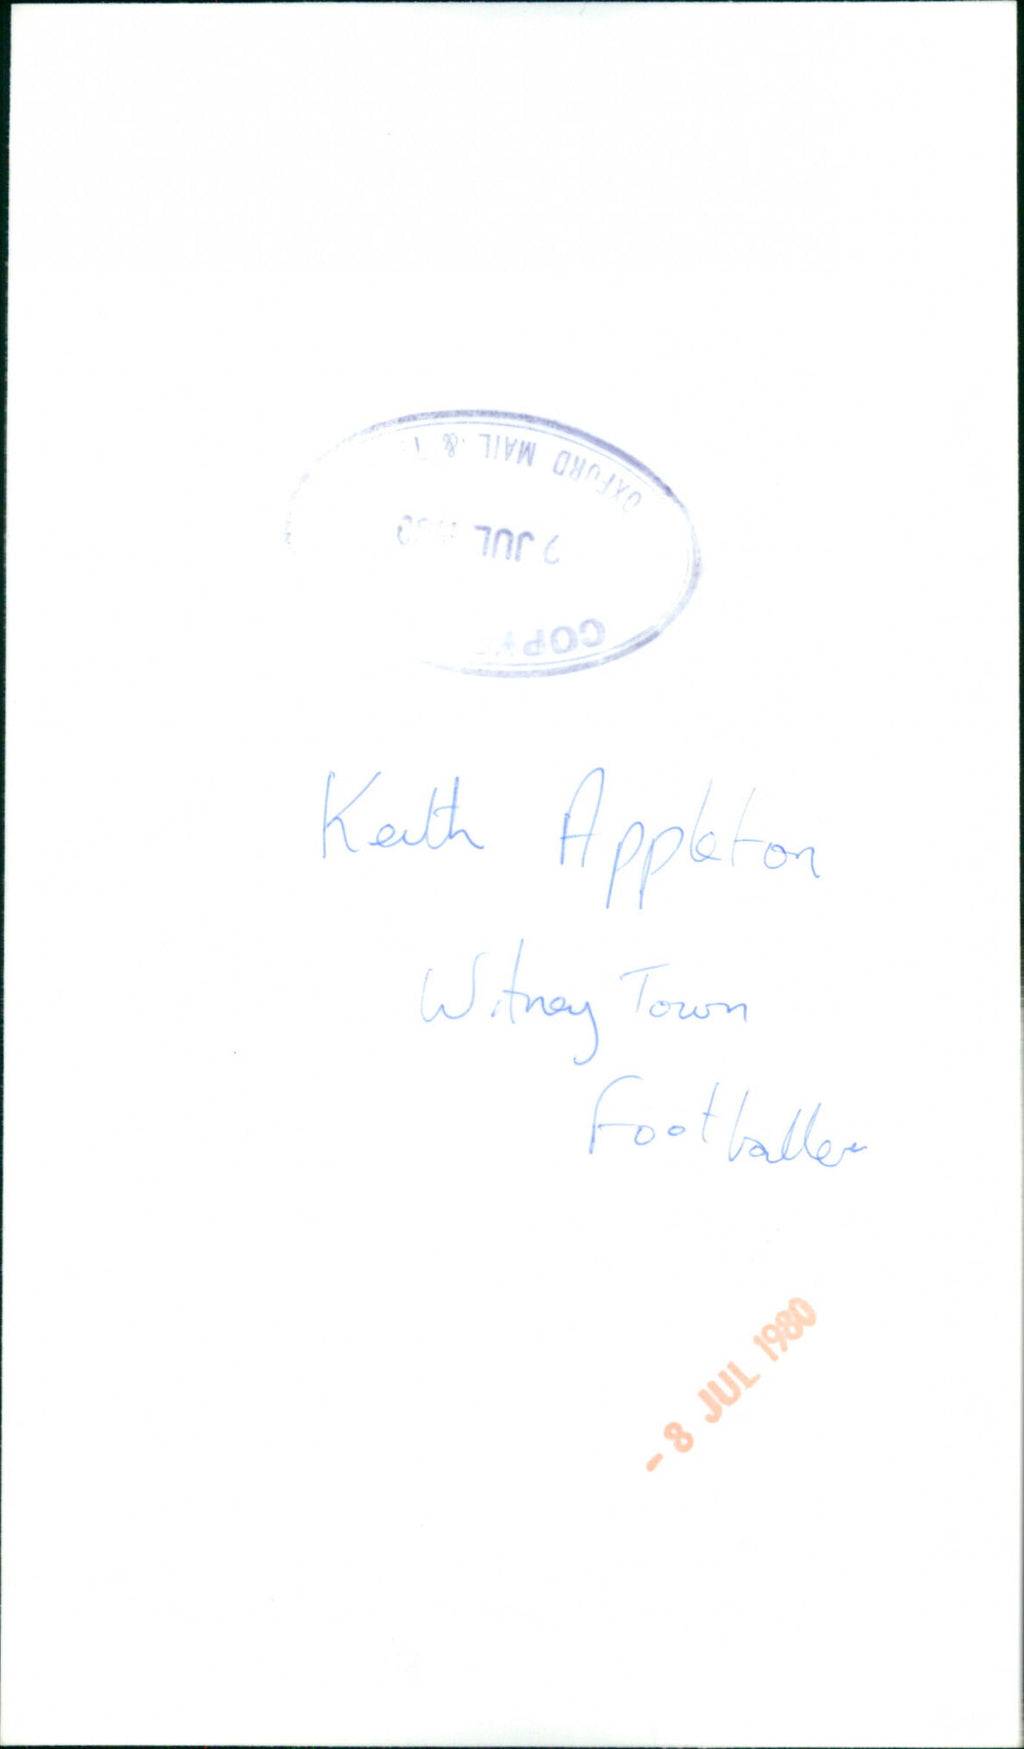 OXFORD MAIL &
JUL
Keith Appleton
Witney Town
Footballer
- 8 JUL 1980